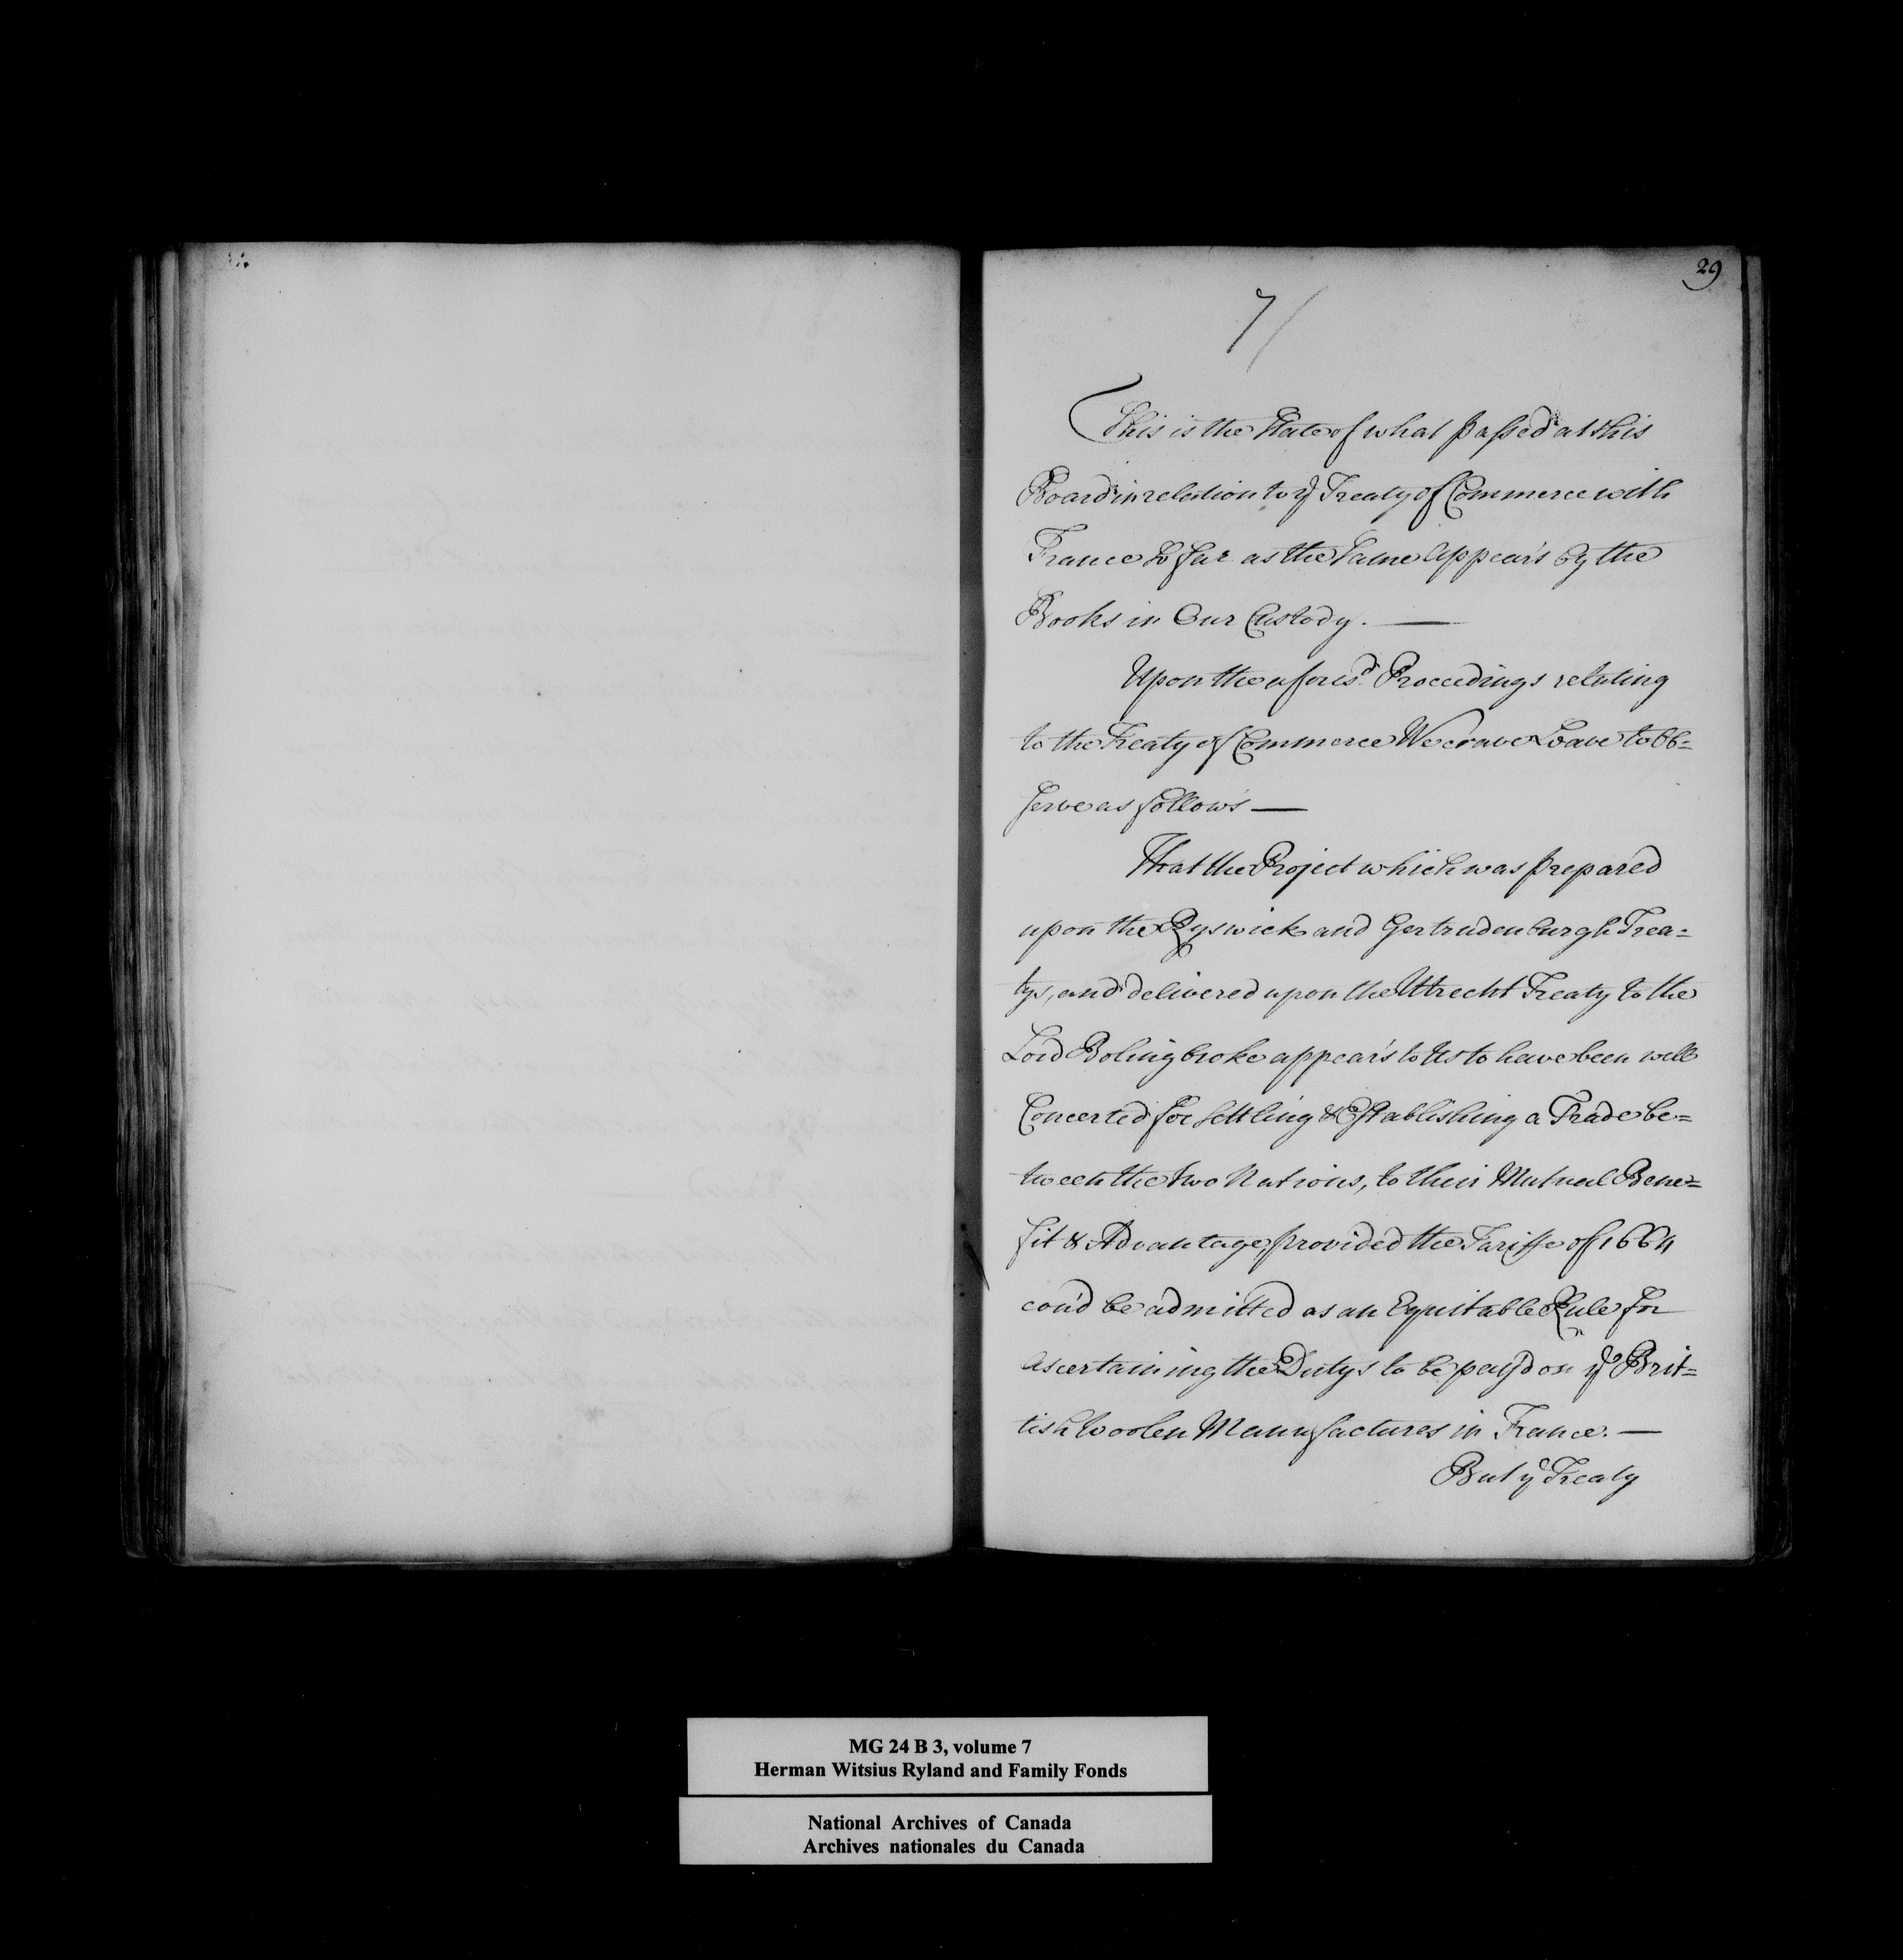 29
7/
This is the State of what passed at this
Board in relation to ye Treaty of Commerce with
France so far as the Same Appear's by the
Books in Our Custody. —
Upon the aforesd. Proceedings relating
to the Treaty of Commerce We crave Leave to Ob=
serve as follows —
That the Project which was prepared
upon the Ryswick and Gertrudenburgh Trea=
tys, and delivered upon the Utrecht Treaty to the
Lord Bolingbroke appear's to Us to have been well
Concerted for settling & Establishing a Trade be=
tween the two Nations, to their Mutual Bene=
fit & Advantage, provided the Tariffe of 1664
cou'd be admitted as an Equitable Rule for
Ascertaining the Dutys to be pay'd on ye Brit=
tish Woolen Manufactures in France. —
But ye Treaty
MG 24 B 3, volume 7
Herman Witsius Ryland and Family Fonds
National Archives of Canada
Archives nationales du Canada